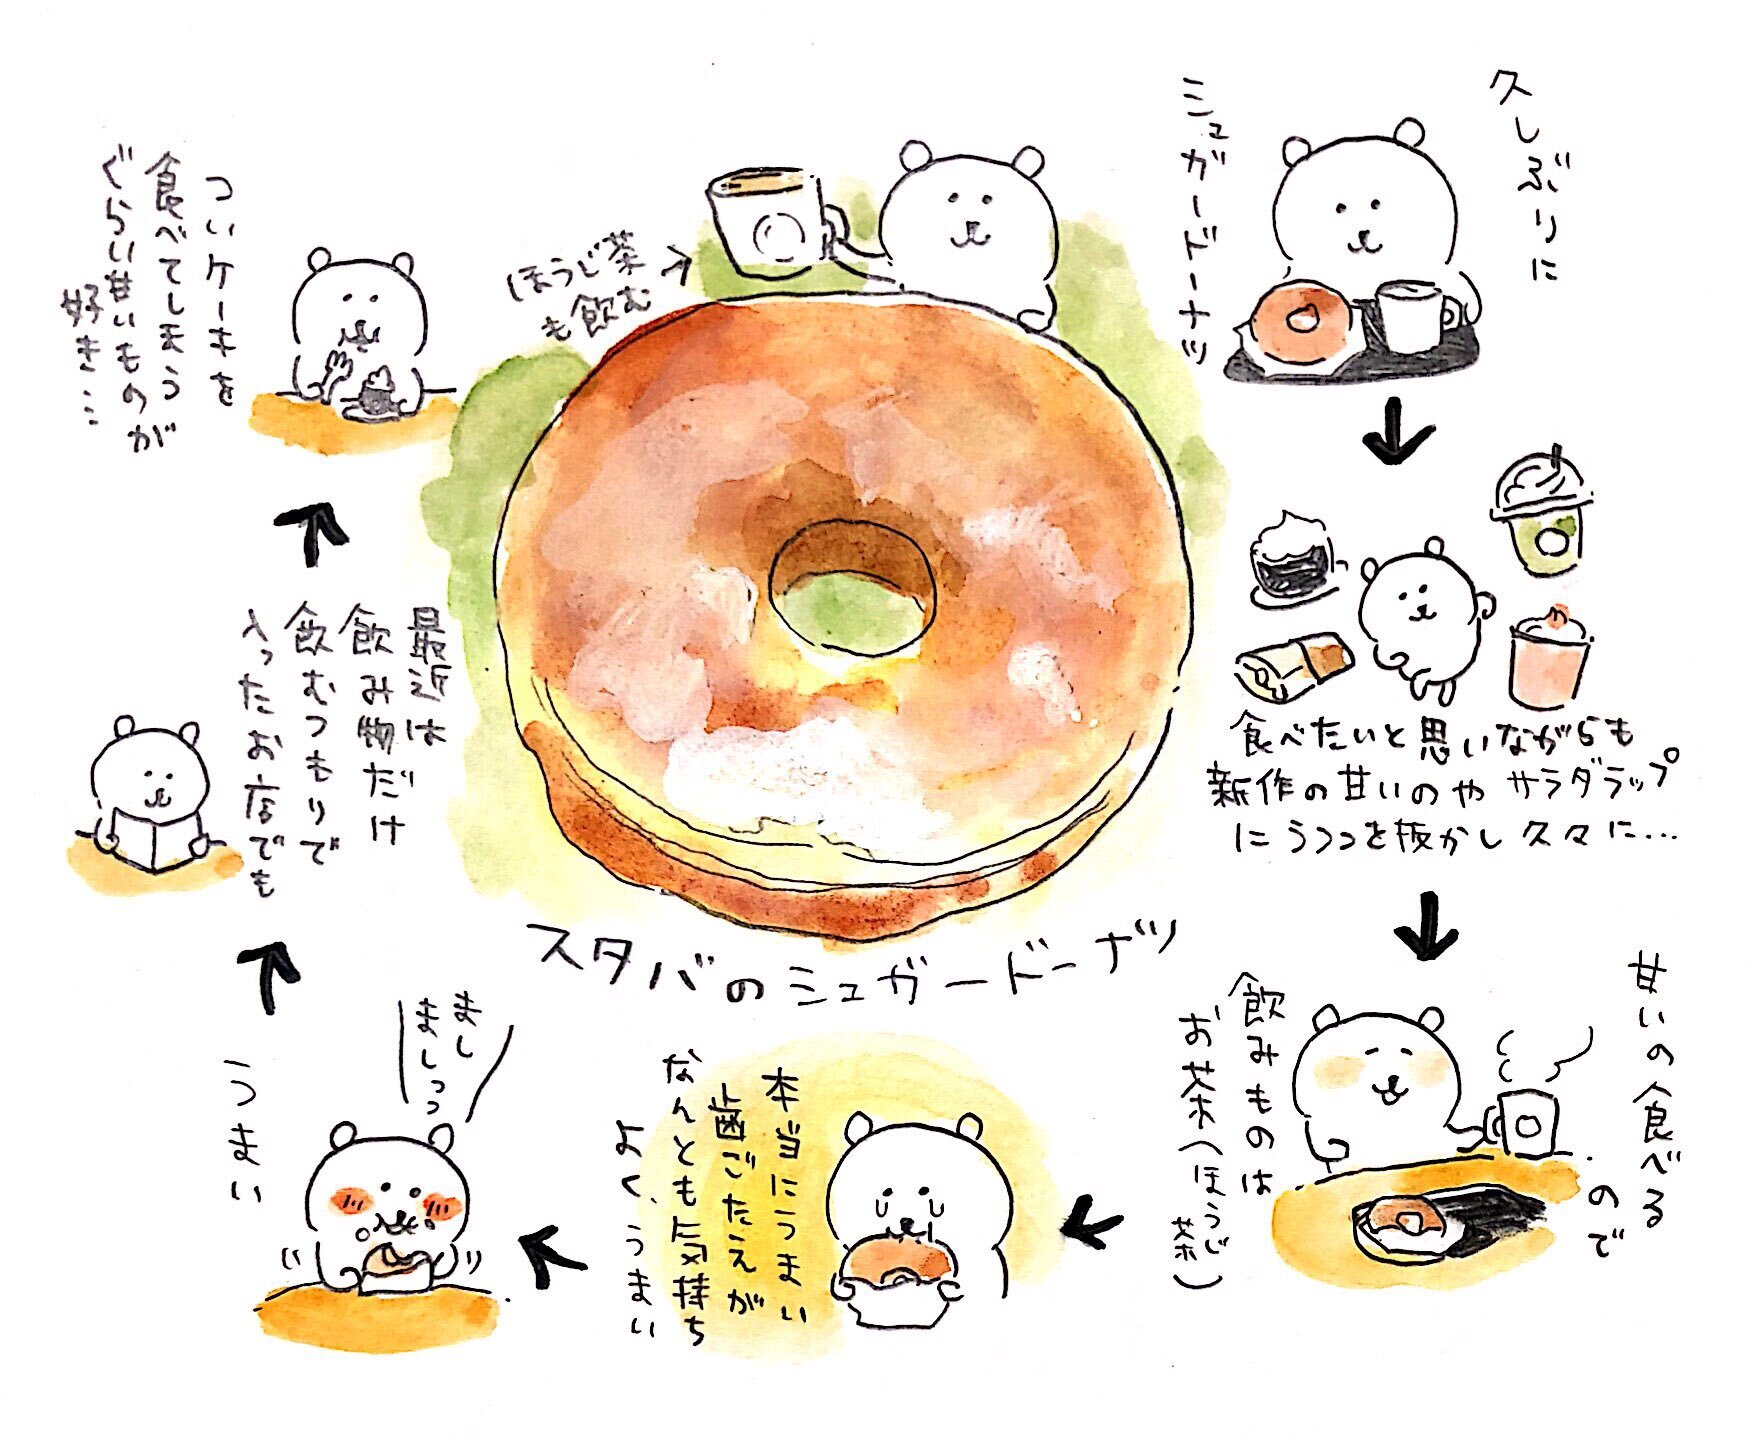 久しぶりに
シュガードーナツ
食べたいと思いながらも
新作の甘いのやサラダラップ
にうつつを抜かし久々に…
甘いの食べる
ので
飲みものは
お茶(ほうじ
茶)
本当にうまい
歯ごたえが
なんとも気持ち
よく、うまい
まし
ましっっ
うまい
最近は
飲み物だけ
飲むつもりで
入ったお店でも
ついケーキを
食べてしまうが
ぐらい甘いものが
好き…
ほうじ茶
も飲む
スタバのシュガードーナツ